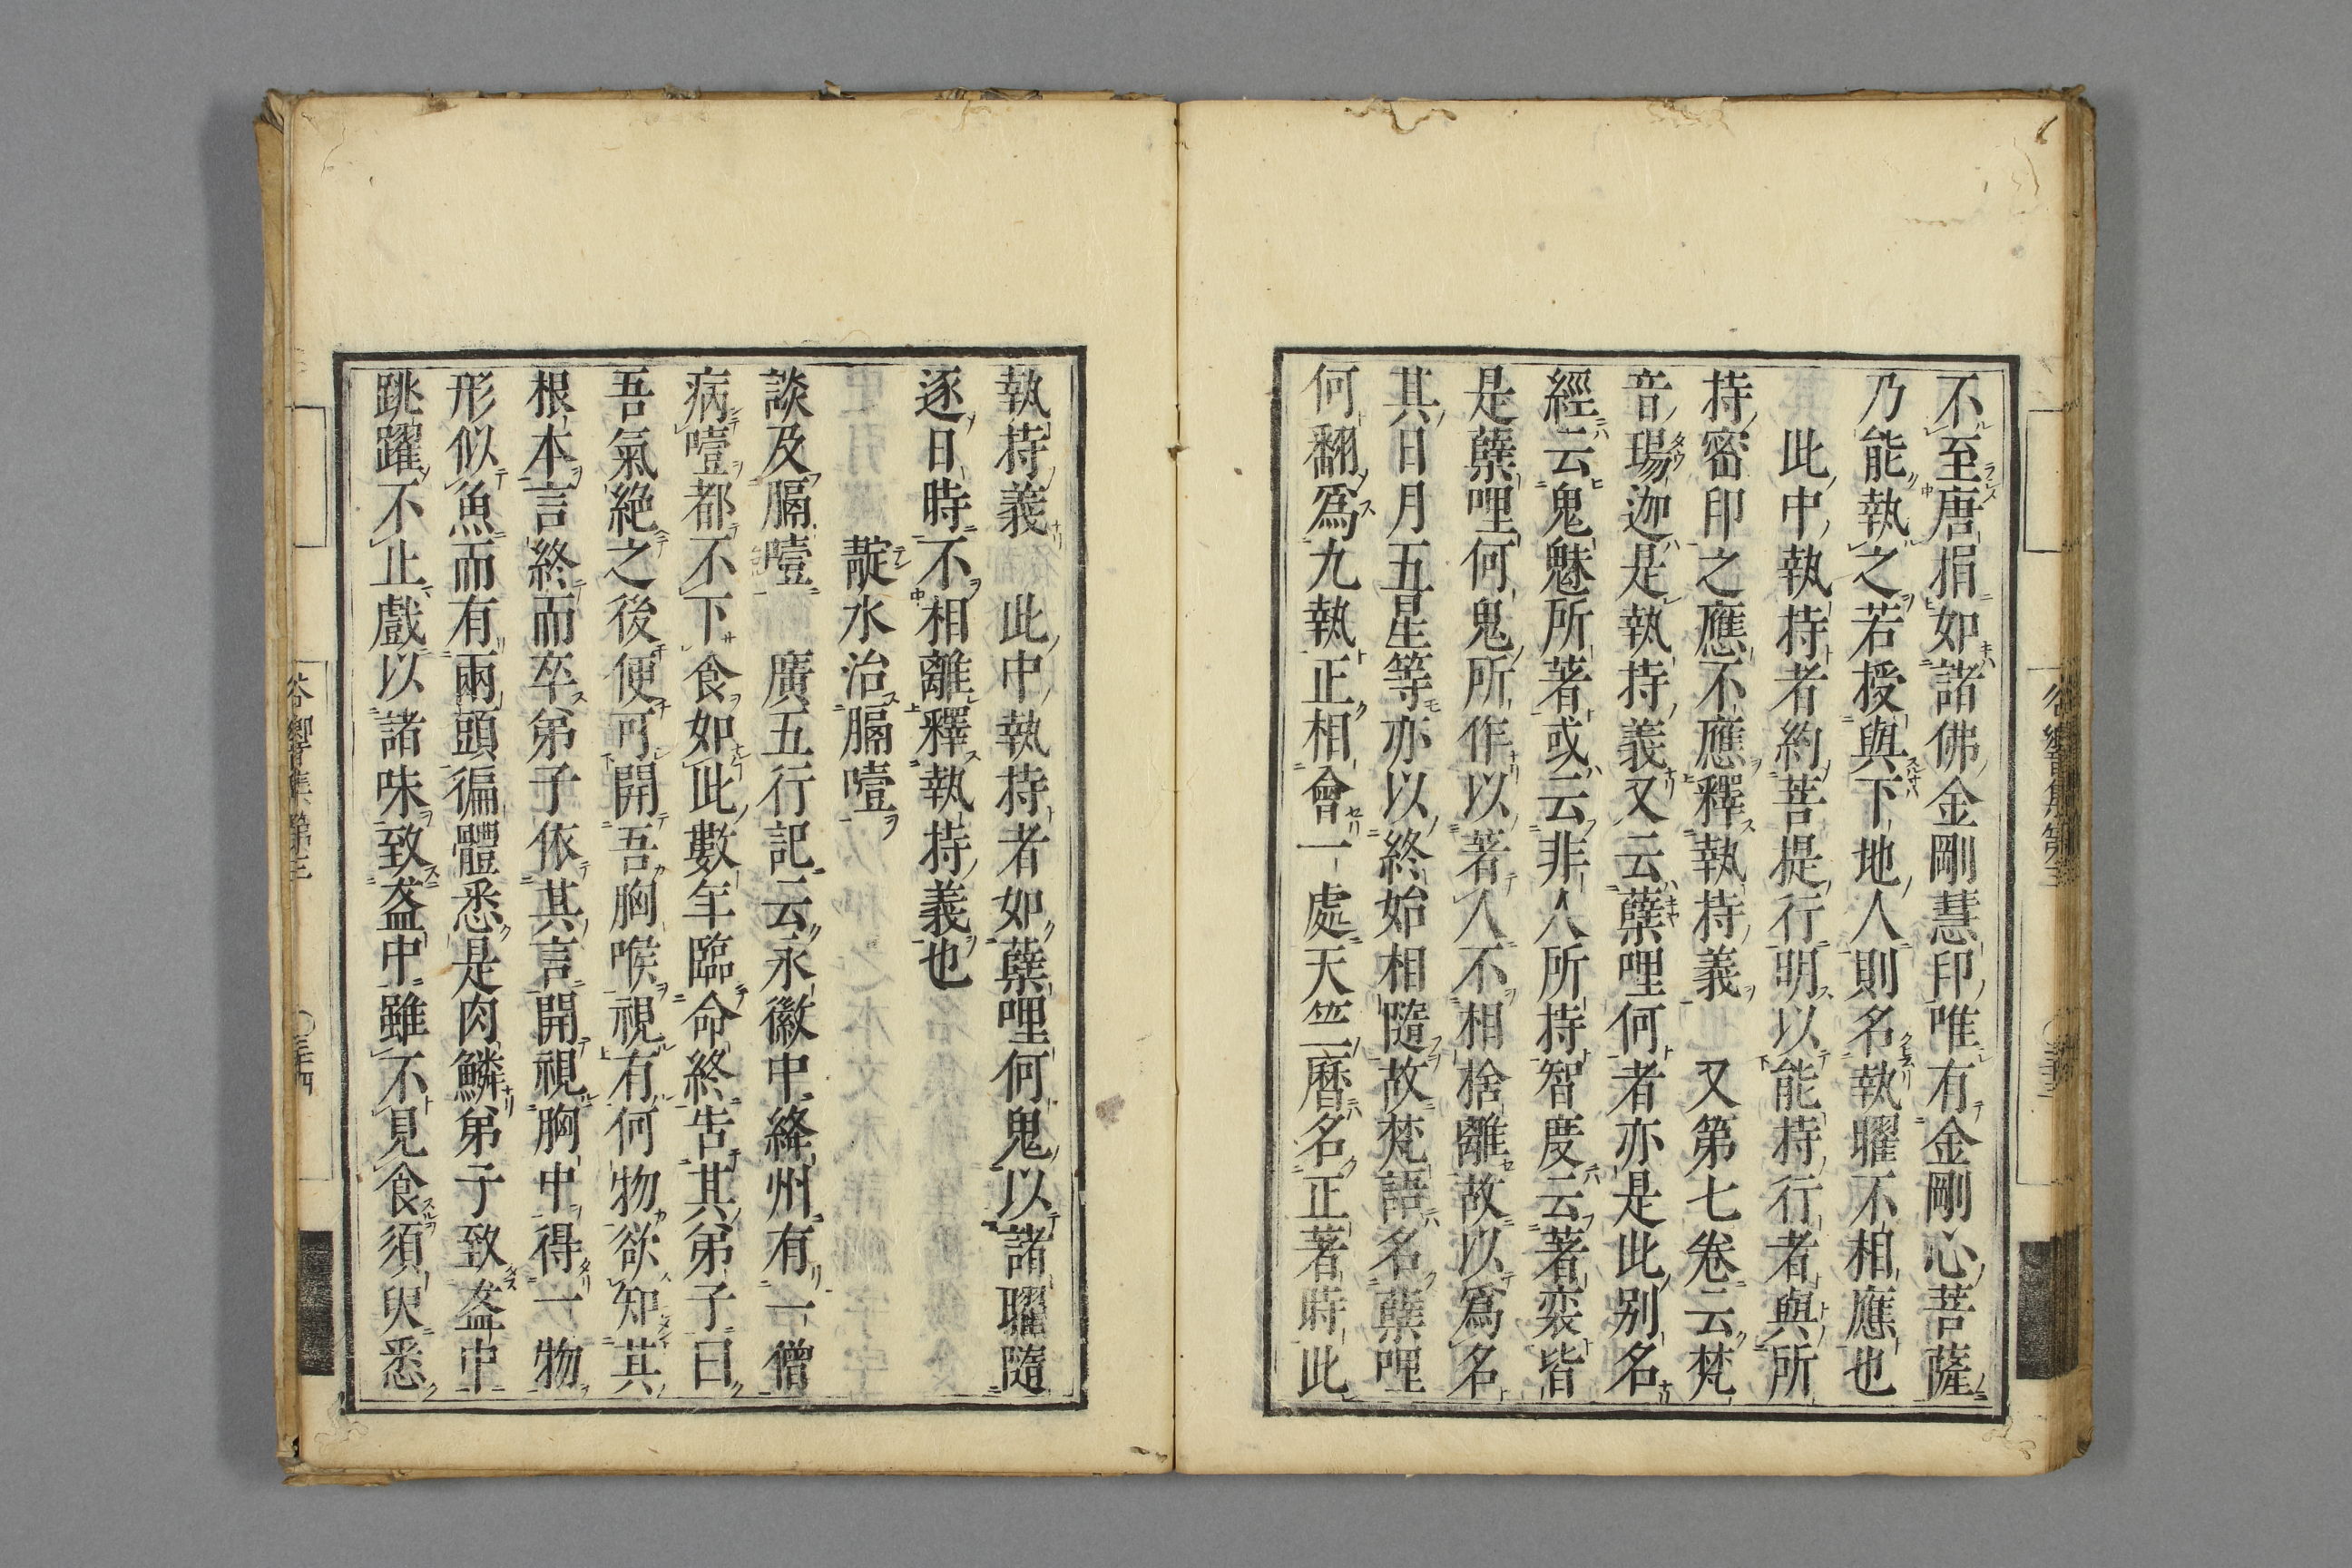 不至唐捐如諸佛金剛慧印唯有金剛心菩薩
乃能執之若授與下地人則名執曜不相應也
此中執持者約菩提行明以能持行者與所
持密印之應不應釋執持義　又第七卷云梵
音瑒迦是執持義又云蘗哩何者亦是此別名
經云鬼魅所著或云非人所持智度云著衰皆
是蘗哩何鬼所作以著人不相捨離故以爲名
其日月五星等亦以終始相隨故梵語名蘗哩
何翻爲九執正相會一處天竺曆名正著時此
執持義　此中執持者如蘗哩何鬼以諸曜隨
逐日時不相離釋執持義也
靛水治膈噎
談及膈噎　廣五行記云永徽中絳州有一僧
病噎都不下食如此數年臨命終告其弟子曰
吾氣絶之後便可開吾胸喉視有何物欲知其
根本言終而卒弟子依其言開視胸中得一物
形似魚而有兩頭徧體悉是肉鱗弟子致盋中
跳躍不止戲以諸味致盋中雖不見食須臾悉
谷響集第三